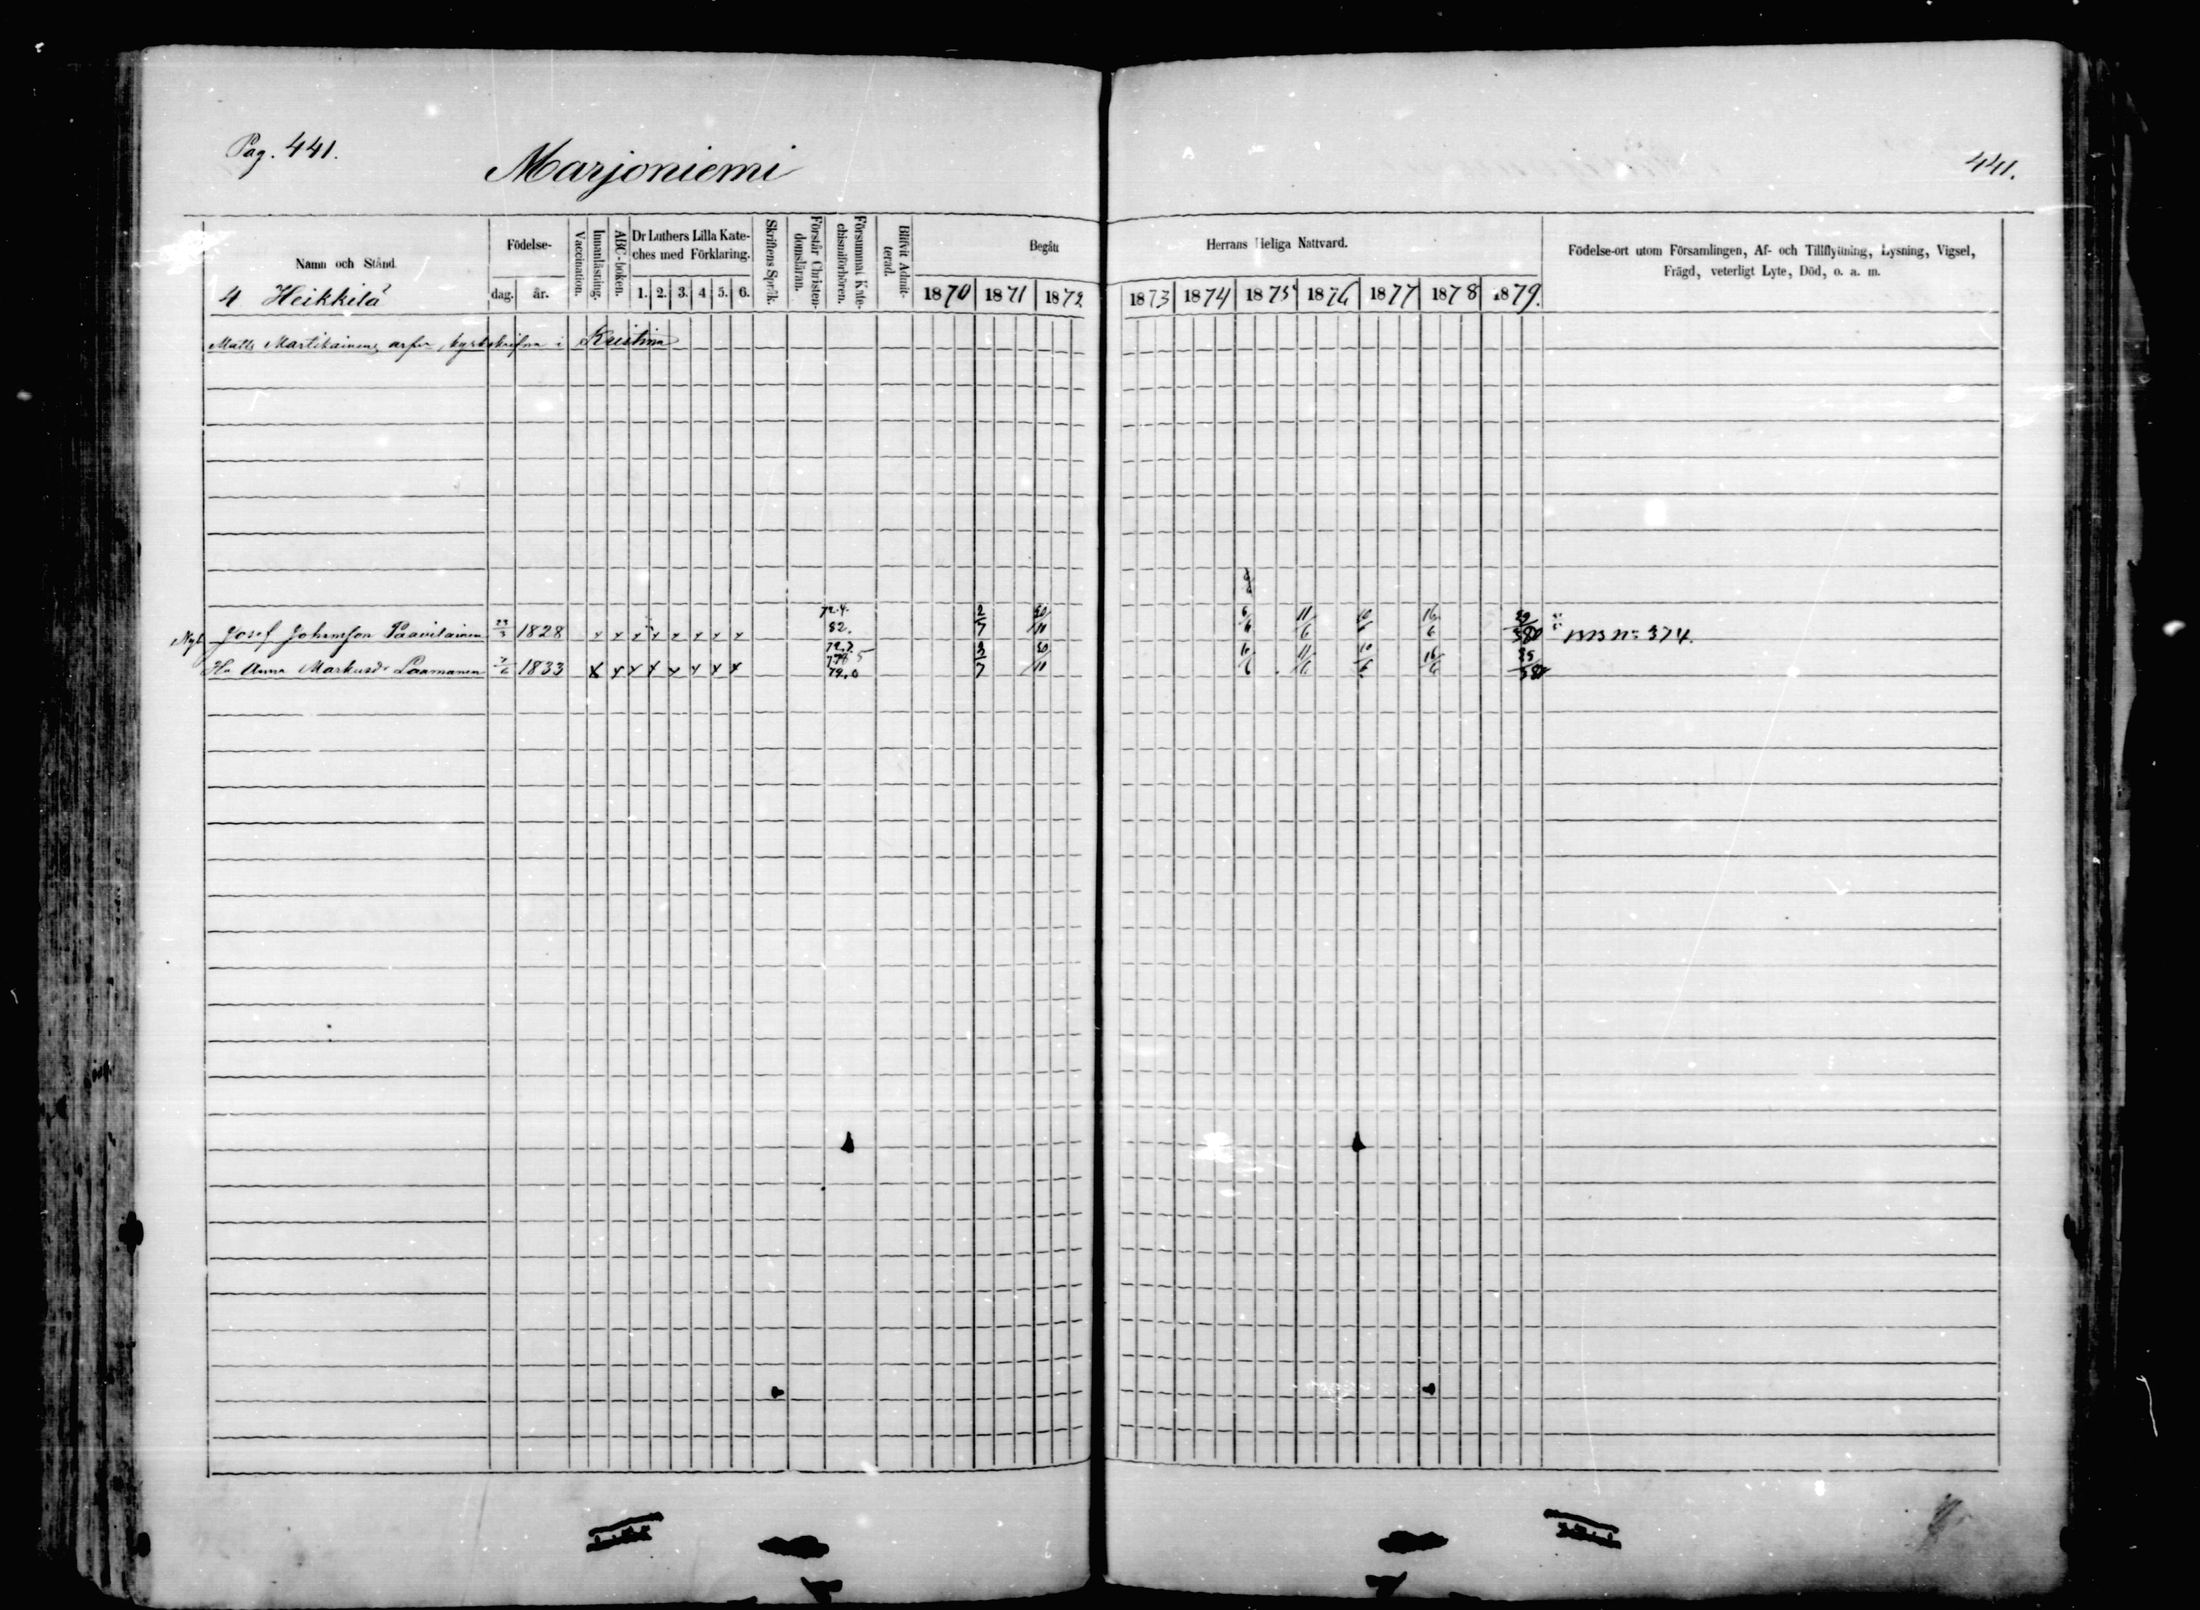 Pag. 441.
Marjoniemi
441.
Namn och Stånd.
Födelse-
dag. år.
Vaccination.
Innanläsning.
ABC-boken.
Dr Luthers Lilla Kate-
ches med Förklaring.
1. 2. 3. 4 5. 6.
Skriftens Språk.
Förstår Christen-
domsläran.
Försummat Kate-
chismiförhören.
Blifvit Admit-
terad.
Begått
Herrans Heliga Nattvard.
1870 1871 1872
1873 1874 1875 1876 1877 1878 1879.
Födelse-ort utom Församlingen, Af- och Tillflyttning, Lysning, Vigsel,
Frägd, veterligt Lyte, Död, o. a. m.
4 Heikkilä
Matts Martikainens arfv. kyrkskrifna i Kristina
72.4.
Nyb. Josef Johansson Paavilainen 23/3 1828 x x x x x x x x 82. 2/7 20/10 6/6 11/6 10/6 16/6 BB No 374.
Hu Anna Markusdr Laamanen 7/6 1833 x x x x x x x x 79.0 2/7 20/10 6/6 11/6 10/6 16/6